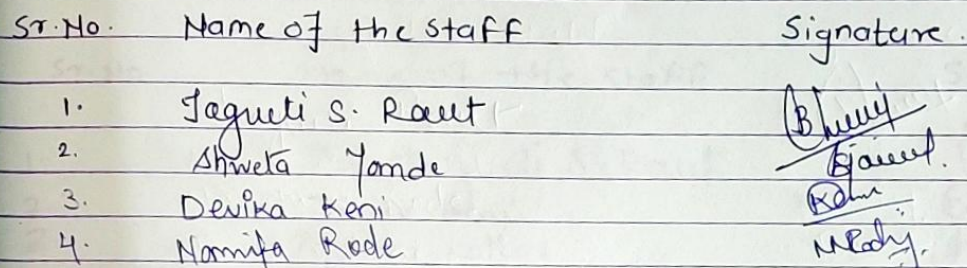 Sr. No. Name of the staff Signature.
1. Jagruti S. Raut
2. Shweta Yomde
3. Devika Keni
4. Namita Rode